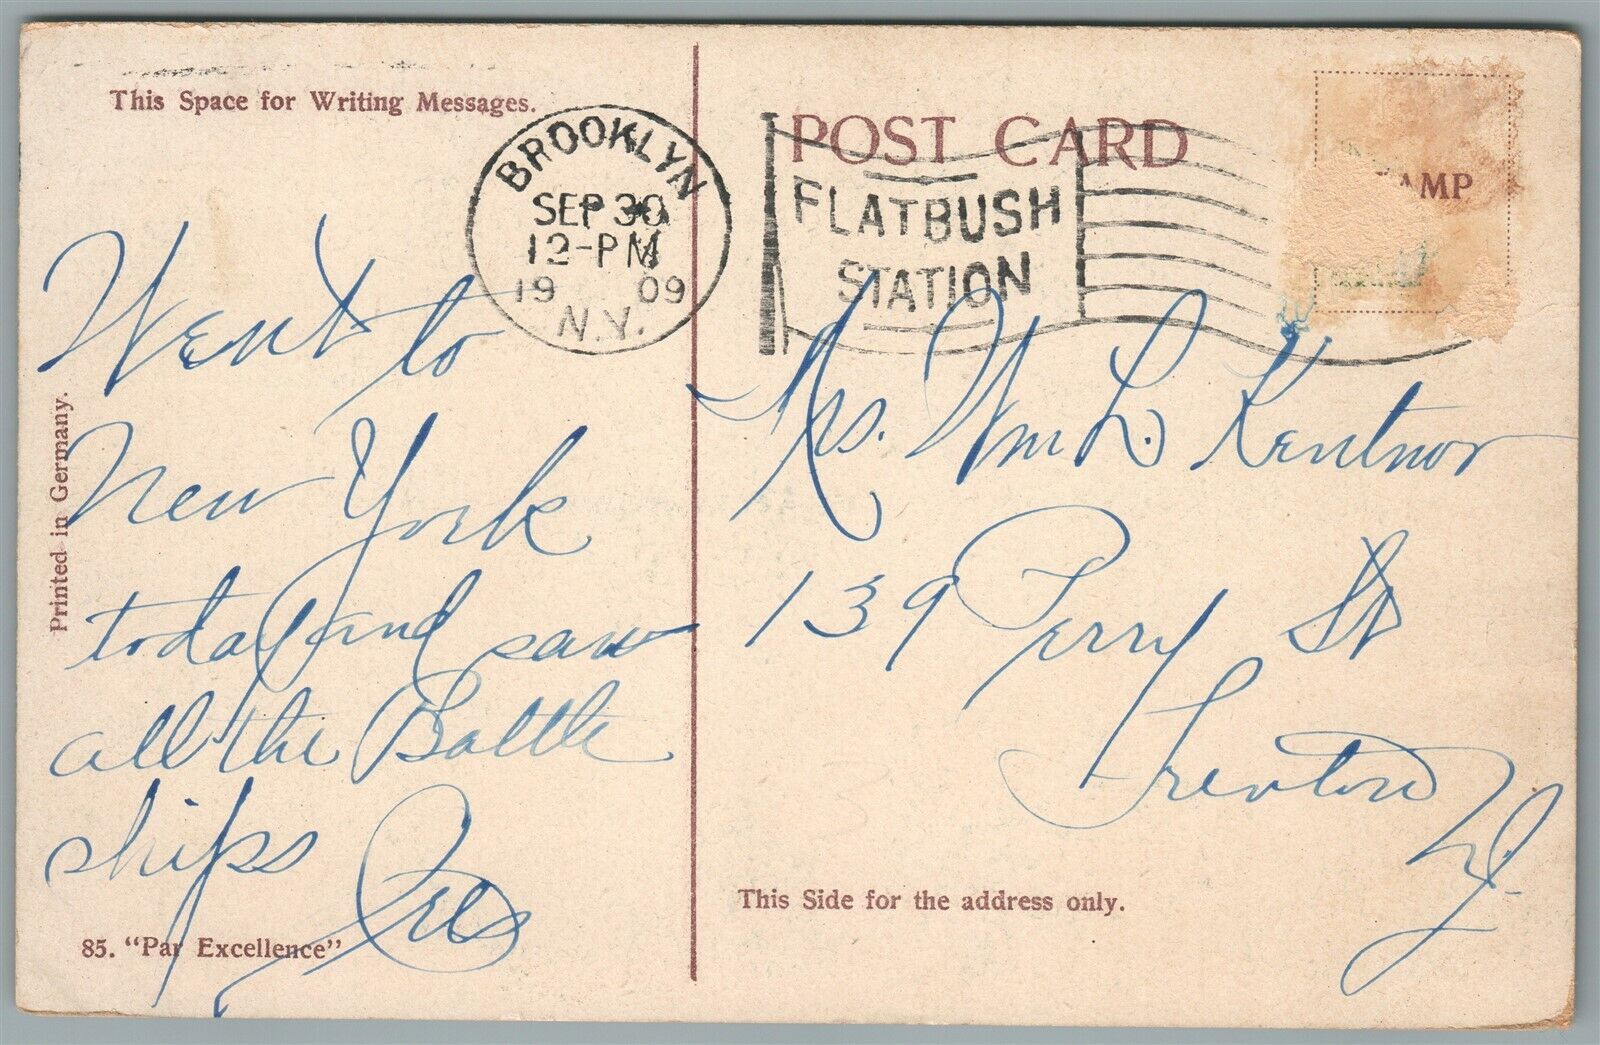 This Space for Writing Messages.
BROOKLYN
SEP 30
12-PM
1909
N.Y.
POST CARD
FLATBUSH
STATION
AMP
Went to
New York
today and saw
all the Battle
ships
Mrs. Wm L. Kentnor
139 Perry St
Trenton
N.J.
Printed in Germany.
This Side for the address only.
85. "Par Excellence"